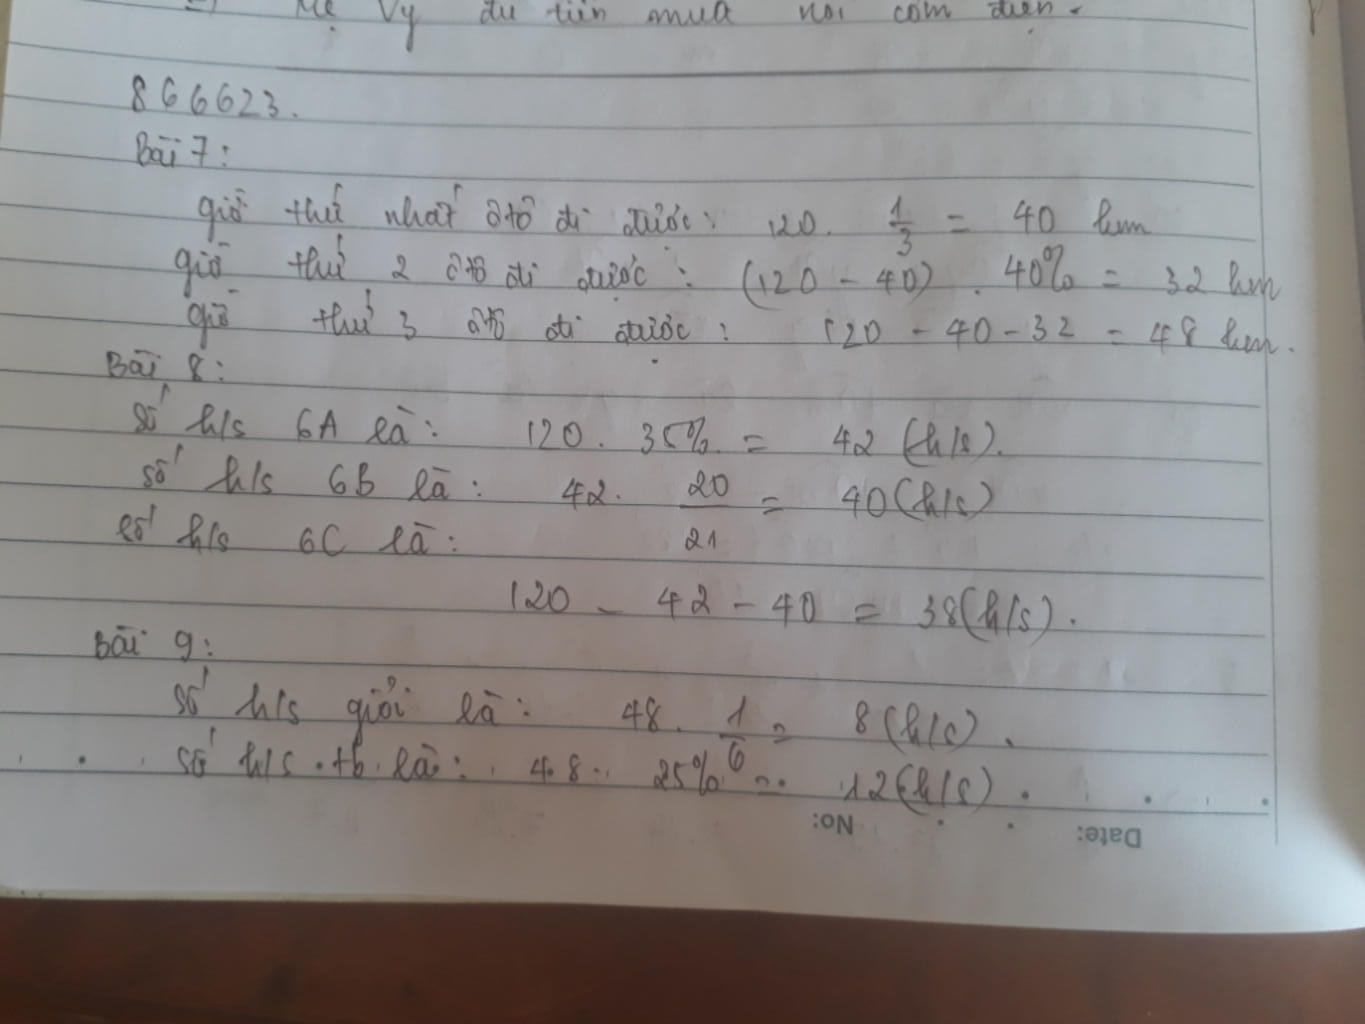 Mẹ Vy đủ tiền mua nồi cơm điện.
866623.
Bài 7:
giờ thứ nhất ôtô đi được: 120. 1/3 = 40 km
giờ thứ 2 ôtô đi được: (120 - 40). 40% = 32 km
giờ thứ 3 ôtô đi được: 120 - 40 - 32 = 48 km.
Bài 8:
số h/s 6A là: 120. 35% = 42 (h/s).
số h/s 6B là: 42. 20/21 = 40 (h/s)
số h/s 6C là:
120 - 42 - 40 = 38 (h/s).
Bài 9:
số h/s giỏi là: 48. 1/6 = 8 (h/s).
số h/s tb là: 48. 25% = 12 (h/s).
No:
Date: